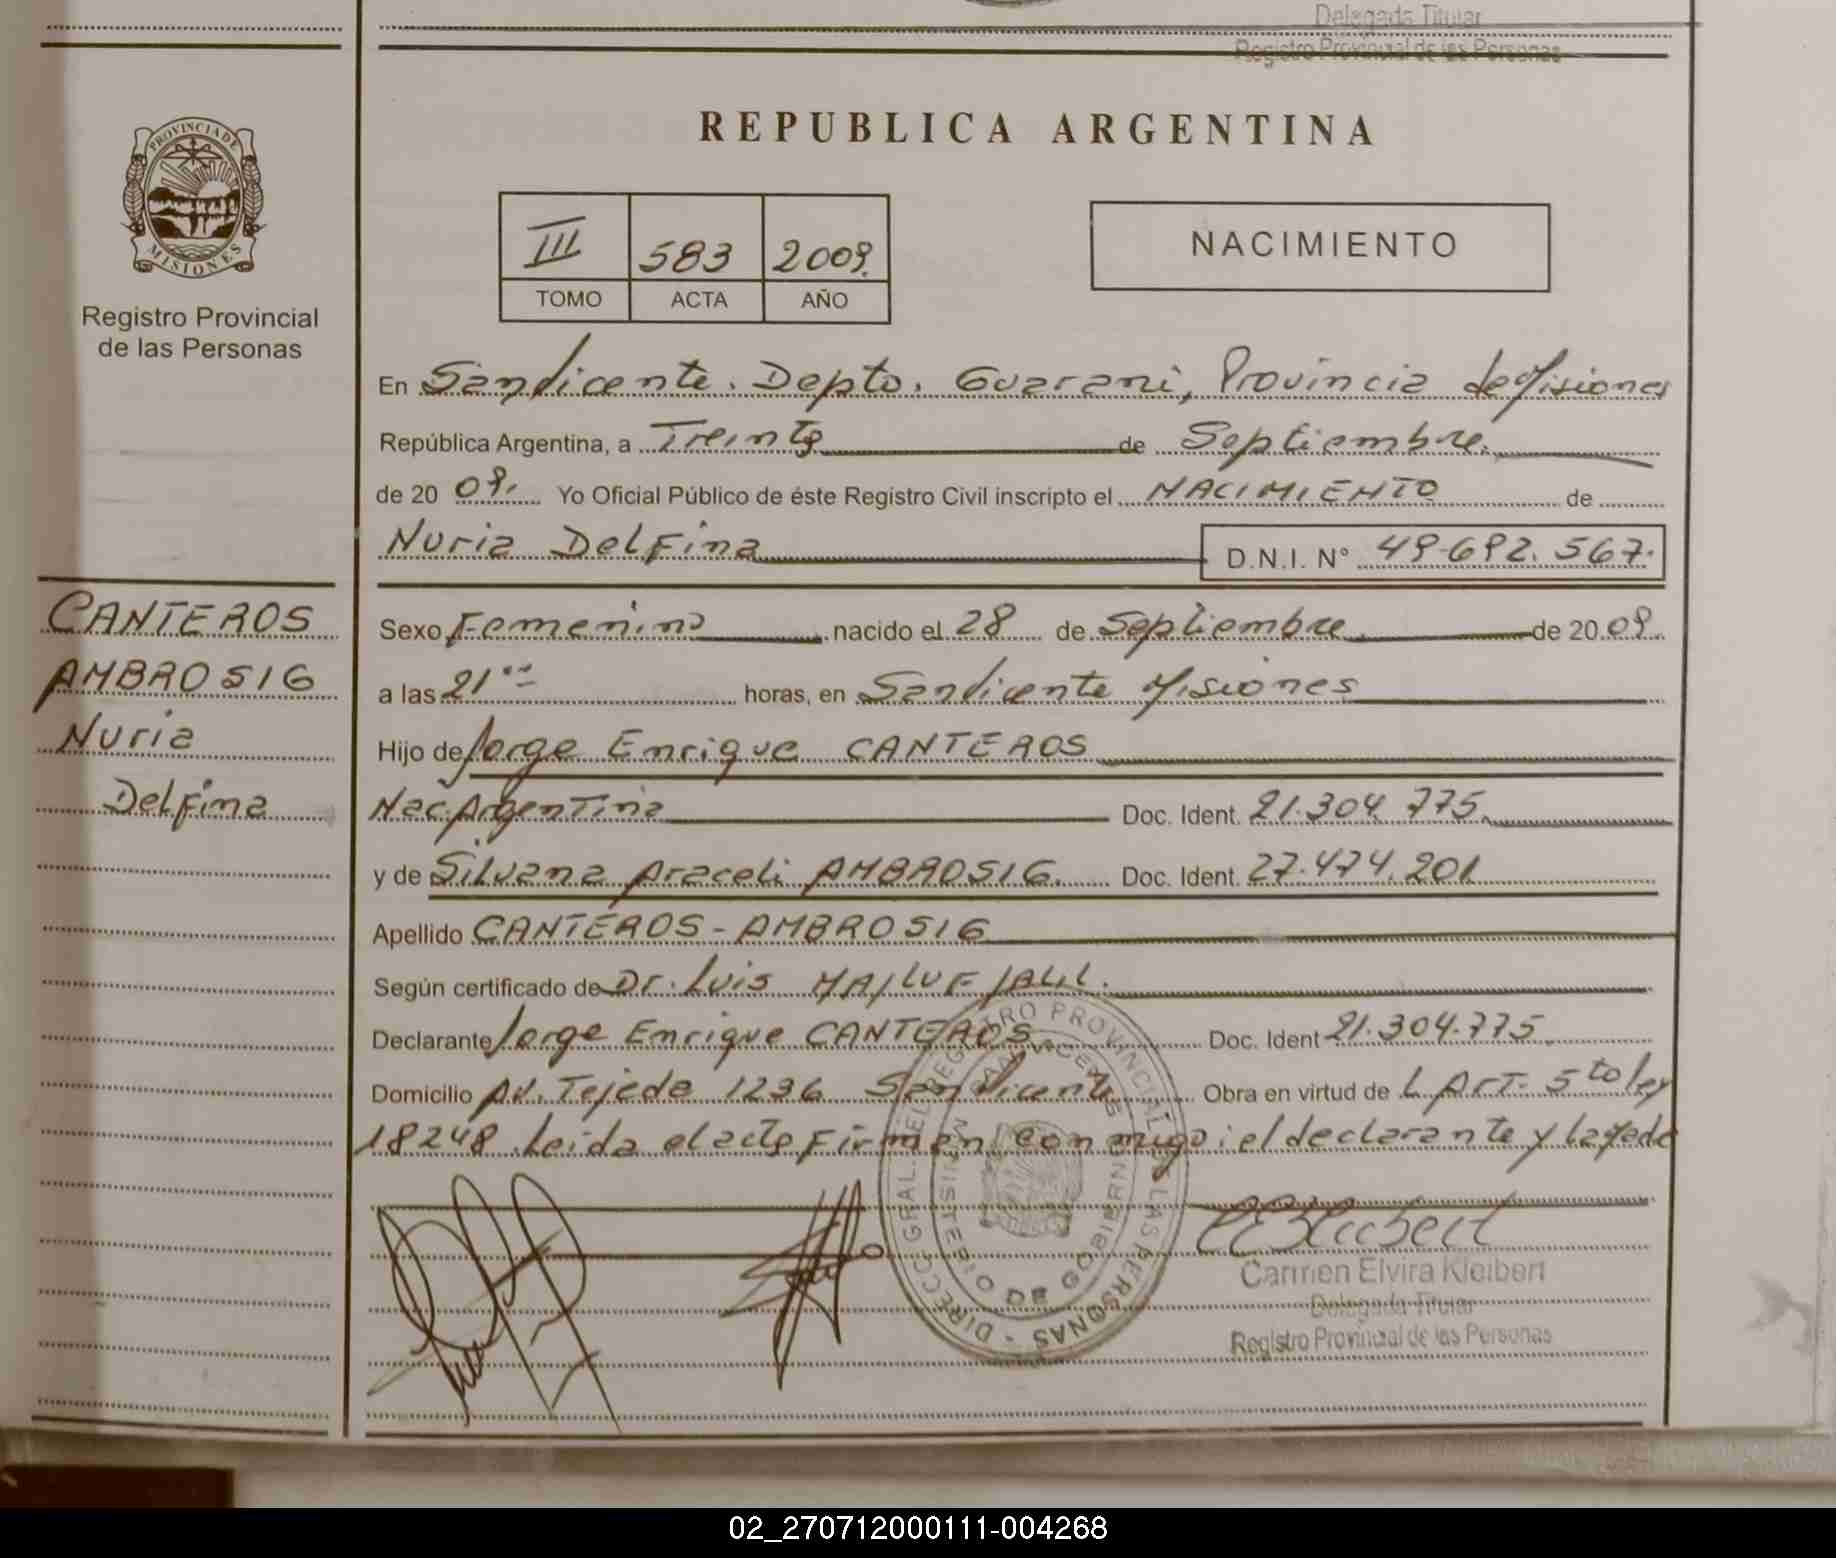 Delegada Titular
Registro Provincial de las Personas
PROVINCIA DE
MISIONES
Registro Provincial
de las Personas
REPUBLICA ARGENTINA
III 583 2009.
TOMO ACTA AÑO
NACIMIENTO
En San Vicente. Depto. Guarani, Provincia de Misiones
República Argentina, a Treinta de Septiembre.
de 20 09. Yo Oficial Público de éste Registro Civil inscripto el NACIMIENTO de
Nuria Delfina D.N.I. N° 49.692.567.
CANTEROS
AMBROSIG
Nuria
Delfina
Sexo Femenino nacido el 28 de Septiembre de 20 09.
a las 21 horas, en San Vicente Misiones
Hijo de Jorge Enrique CANTEROS
Nac. Argentina Doc. Ident. 21.304.775.
y de Silvana Araceli AMBROSIG. Doc. Ident. 27.474.201
Apellido CANTEROS - AMBROSIG
Según certificado de Dr. Luis
Declarante Jorge Enrique CANTEROS. Doc. Ident 21.304.775.
Domicilio Av. Tejeda 1236 San Vicente Obra en virtud de L Art. 5to ley
18248. Leida el acta Firman conmigo: el declarante y la
Carmen Elvira Kleibert
Delegada Titular
Registro Provincial de las Personas
DIRECC. GRAL. DEL REGISTRO PROVINCIAL DE LAS PERSONAS
MINISTERIO DE GOBIERNO
SAN VICENTE
02_270712000111-004268